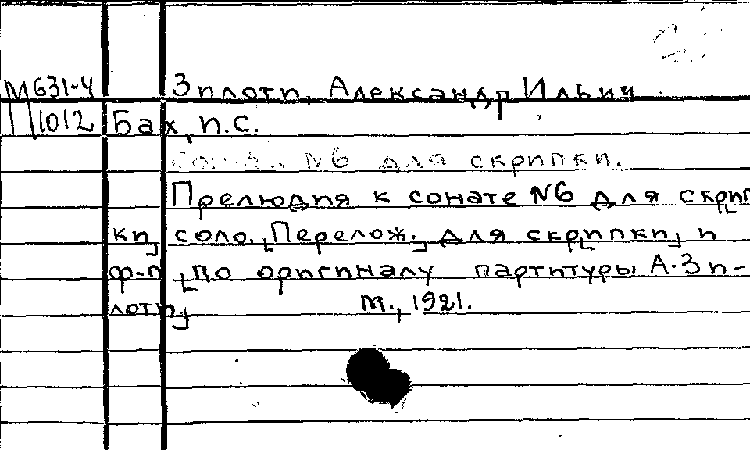 М 631-4 Зилоти, Александр Ильич.
П/1012 Бах, И.С.
Сонат. №6 для скрипки.
Прелюдия к сонате №6 для скрип
ки] соло. [Перелож.] для скр[ипки] и
ф-п [по оригиналу партитуры А. Зи-
лоти]
М., 1921.